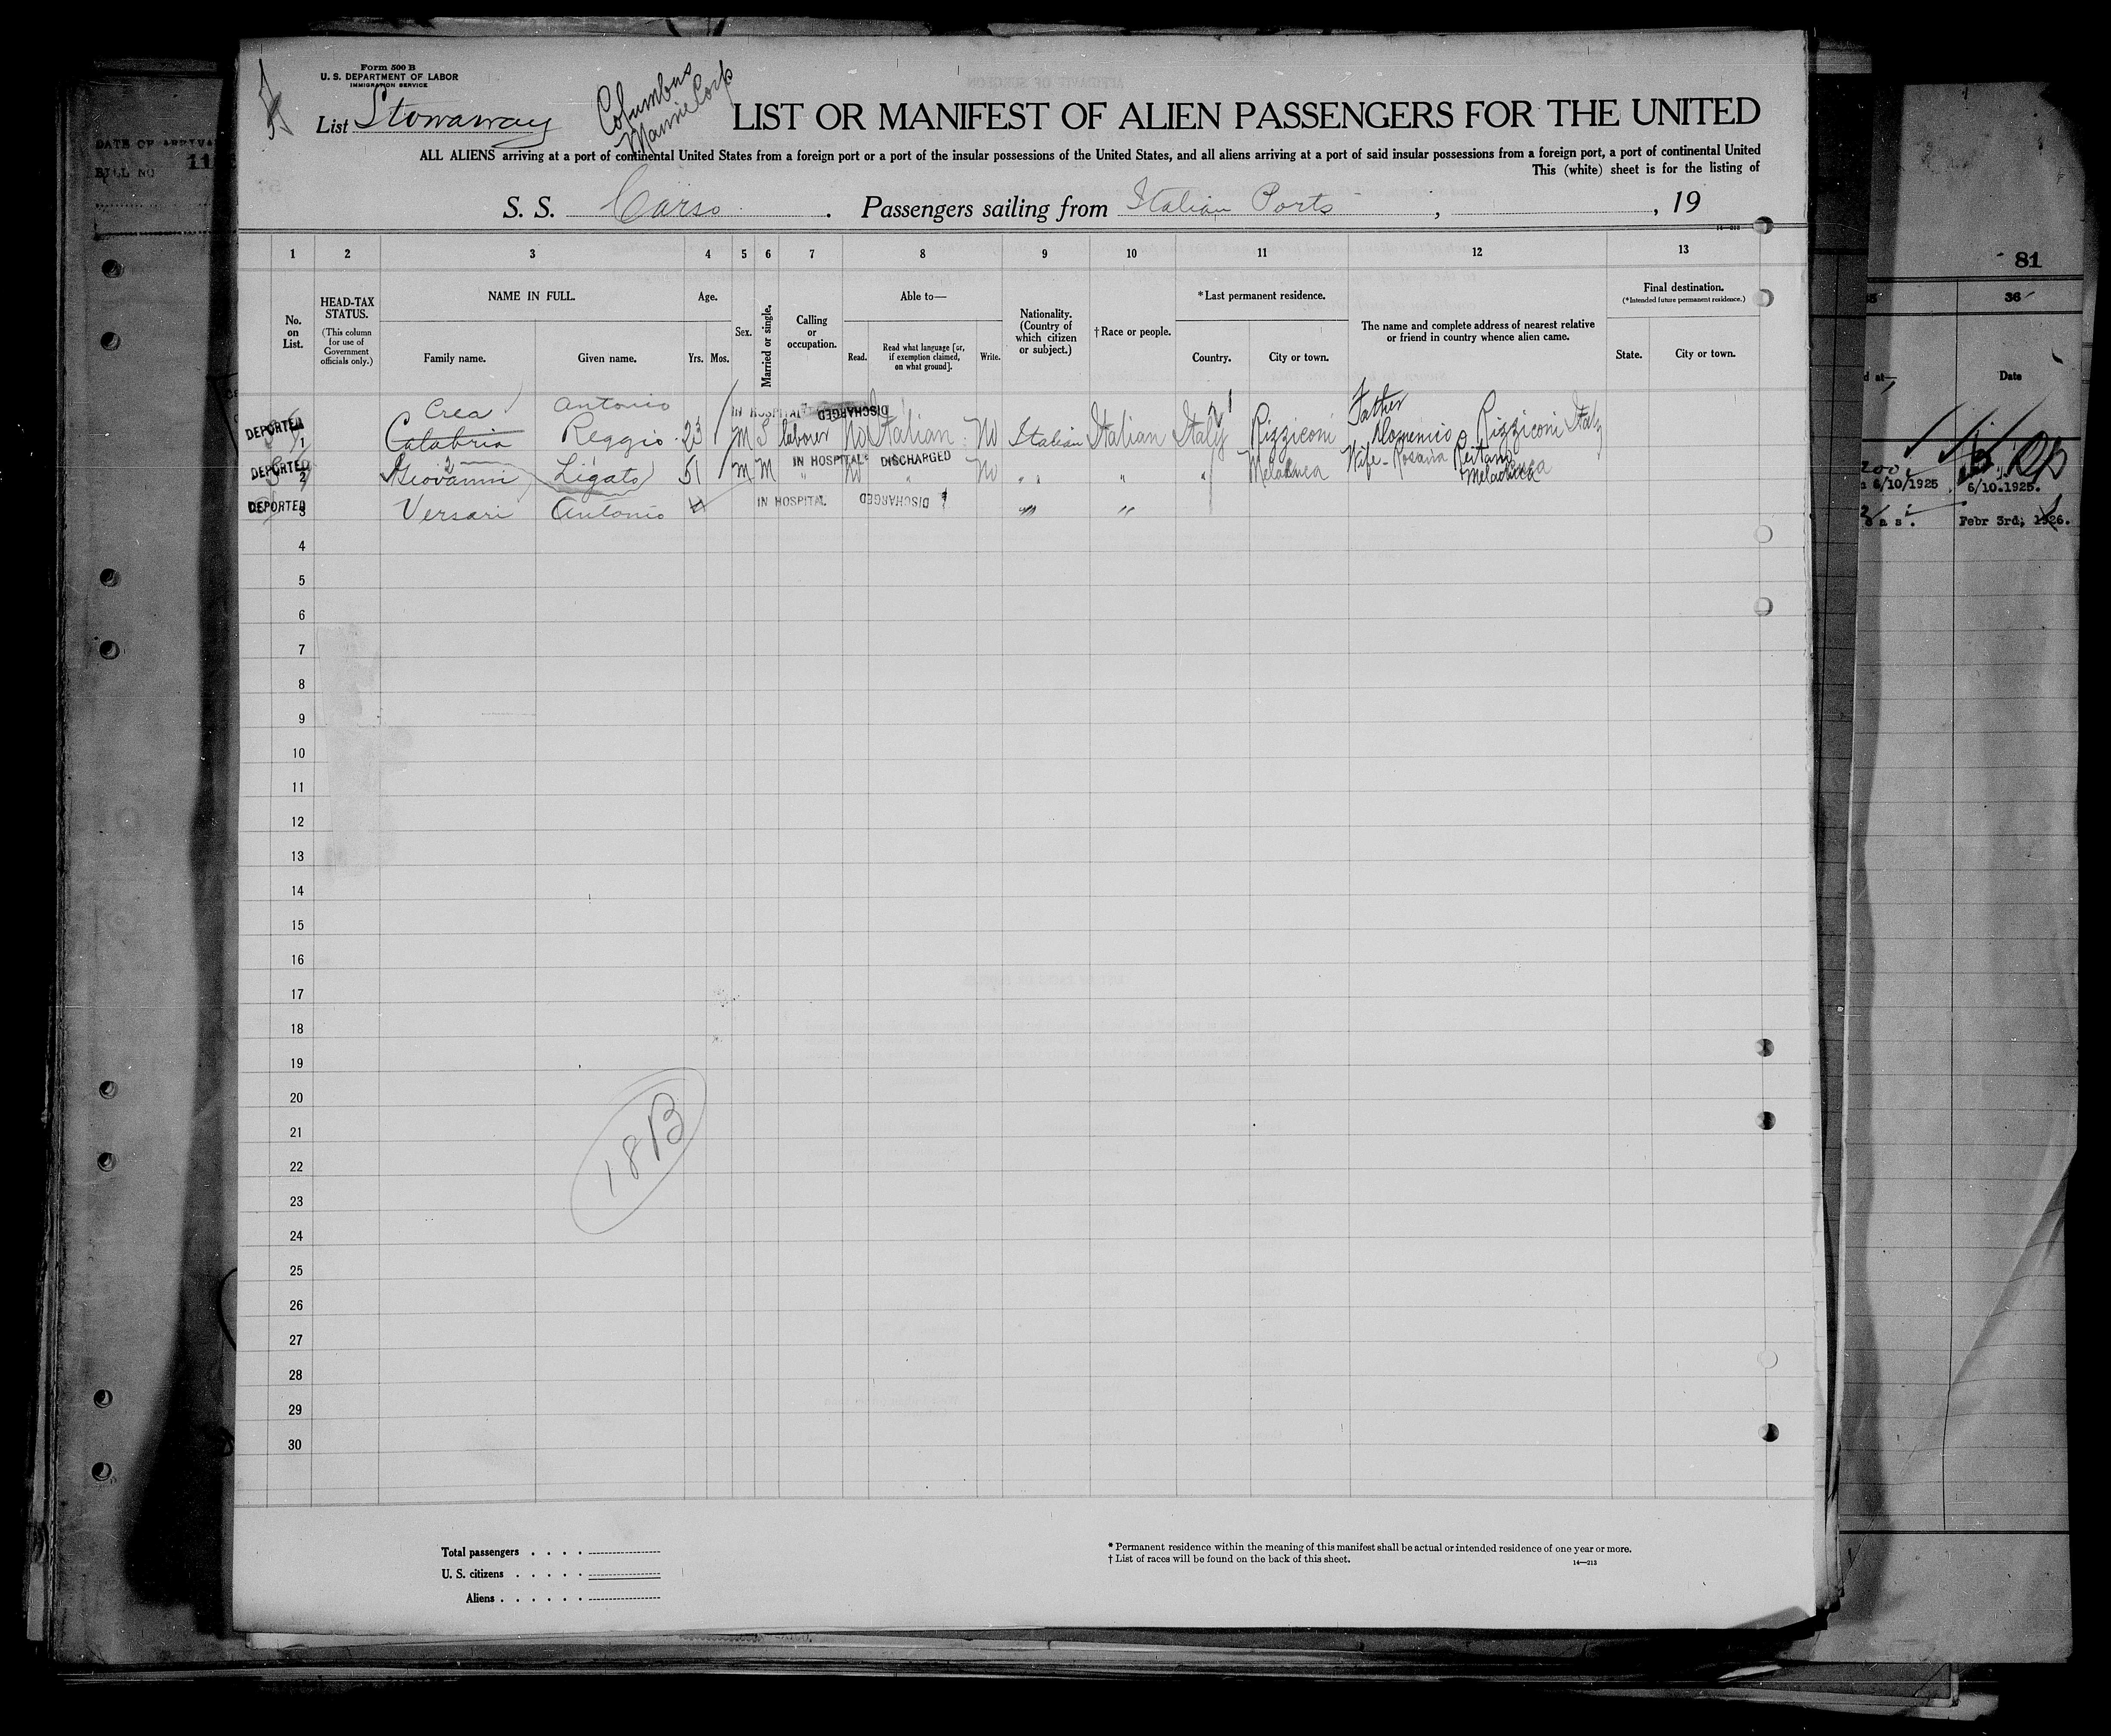 Form 500 B
U. S. DEPARTMENT OF LABOR
IMMIGRATION SERVICE
List Stowaway
Columbus
Marine Corp
LIST OR MANIFEST OF ALIEN PASSENGERS FOR THE UNITED
ALL ALIENS arriving at a port of continental United States from a foreign port or a port of the insular possessions of the United States, and all aliens arriving at a port of said insular possessions from a foreign port, a port of continental United
This (white) sheet is for the listing of
S. S. Carso. Passengers sailing from Italian Ports, , 19
14—213
1 2 3 4 5 6 7 8 9 10 11 12 13
No. on List.
HEAD-TAX STATUS.
(This column for use of Government officials only.)
NAME IN FULL.
Family name. Given name.
Age.
Yrs. Mos.
Sex.
Married or single.
Calling or occupation.
Able to—
Read. Read what language [or, if exemption claimed, on what ground]. Write.
Nationality. (Country of which citizen or subject.)
†Race or people.
*Last permanent residence.
Country. City or town.
The name and complete address of nearest relative or friend in country whence alien came.
Final destination.
(*Intended future permanent residence.)
State. City or town.
Crea Antonio IN HOSPITAL DISCHARGED Father
DEPORTED 1 Calabria Reggio 23 M S laborer No Italian No Italian Italian Italy Rizziconi Domenico Rizziconi Italy
DEPORTED 2 Giovanni Ligato 51 M M " IN HOSPITAL No DISCHARGED " No " " " " Wife - Rosaria
DEPORTED 3 Versari Antonio IN HOSPITAL DISCHARGED " "
4
5
6
7
8
9
10
11
12
13
14
15
16
17
18
19
20
21
22
23
24
25
26
27
28
29
30
18B
Total passengers
U. S. citizens
Aliens
* Permanent residence within the meaning of this manifest shall be actual or intended residence of one year or more.
† List of races will be found on the back of this sheet.
14—213
DATE OF ARRIVA
BILL NO 11
81
36
Date
6/10/1925 6/10.1925.
Febr 3rd, 1926.